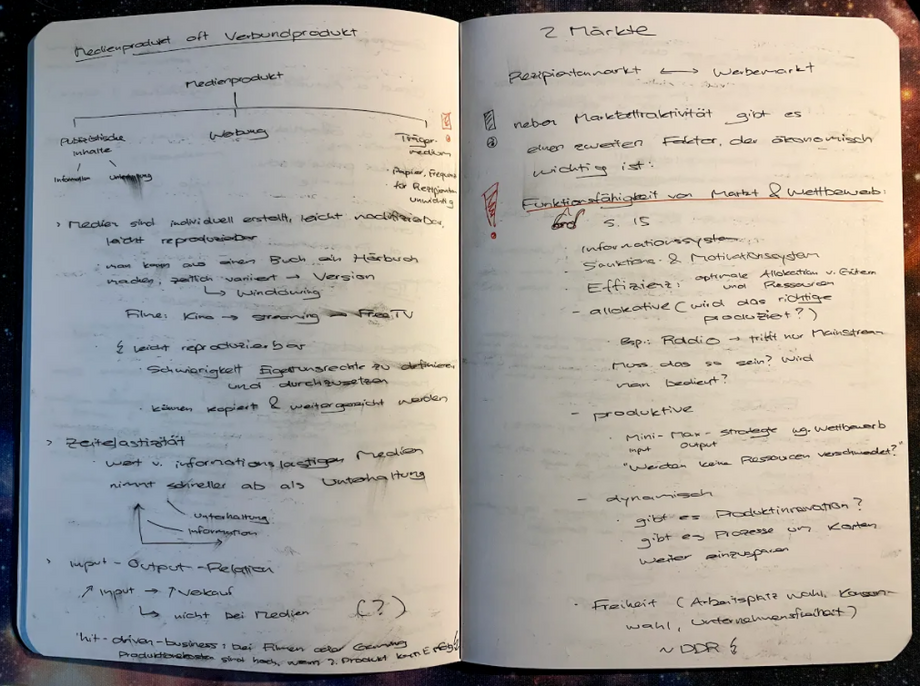 Medienprodukt oft Verbundprodukt
Medienprodukt
Publizistische Inhalte
Werbung
Träger-
medium
Information
Unterhaltung
Papier, Frequenz
für Rezipienten
unwichtig
> Medien sind individuell erstellt, leicht modifizierbar,
leicht reproduzierbar
man kann aus einen Buch ein Hörbuch
machen, zeitlich variiert → Version
↳ Windowing
Filme: Kino → streaming → FreeTV
leicht reproduzierbar
· Schwierigkeit Eigentumsrechte zu definieren
und durchzusetzen
· können kopiert & weitergereicht werden
> Zeitelastizität
· Wert v. informationslastigen Medien
nimmt schneller ab als Unterhaltung
Unterhaltung
Information
> Input-Output-Relation
↗ Input → ↑ Verkauf
↳ nicht bei Medien (?)
"hit-driven-business: bei Filmen oder Gaming
Produktionskosten sind hoch, wenn Produkt kein Erfolg
2 Märkte
Rezipientenmarkt ↔ Werbemarkt
neben Marktattraktivität gibt es
einen zweiten Faktor, der ökonomisch
wichtig ist:
Funktionsfähigkeit von Markt & Wettbewerb:
S. 15
· Informationssystem
· Sanktions- & Motivationssystem
· Effizienz: optimale Allokation v. Gütern
und Ressourcen
- allokative (wird das richtige
produziert?)
Bsp.: Radio → trifft nur Mainstream
Muss das so sein? Wird
man bedient?
- produktive
· Mini-Max-strategie wg. Wettbewerb
Input Output
"Werden keine Ressourcen verschwendet?"
- dynamisch
· gibt es Produktinnovation?
· gibt es Prozesse um Kosten
weiter einzusparen
· Freiheit (Arbeitsplatzwahl, Konsum-
wahl, Unternehmensfreiheit)
~ DDR